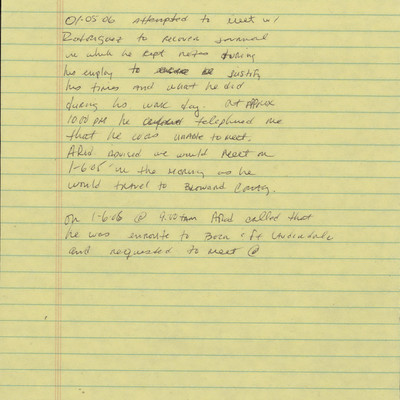 01-05-06 attempted to meet w/
Rodriguez to recover journal
in which he kept notes during
his employ to justify
his times and what he did
during his work day. at Approx
10:00 pm he telephoned me
that he was unable to meet.
advised we would meet on
1-6-05 in the morning as he
would travel to Broward County.
on 1-6-06 @ called that
he was enroute to Boca Ft Lauderdale
and requested to meet @